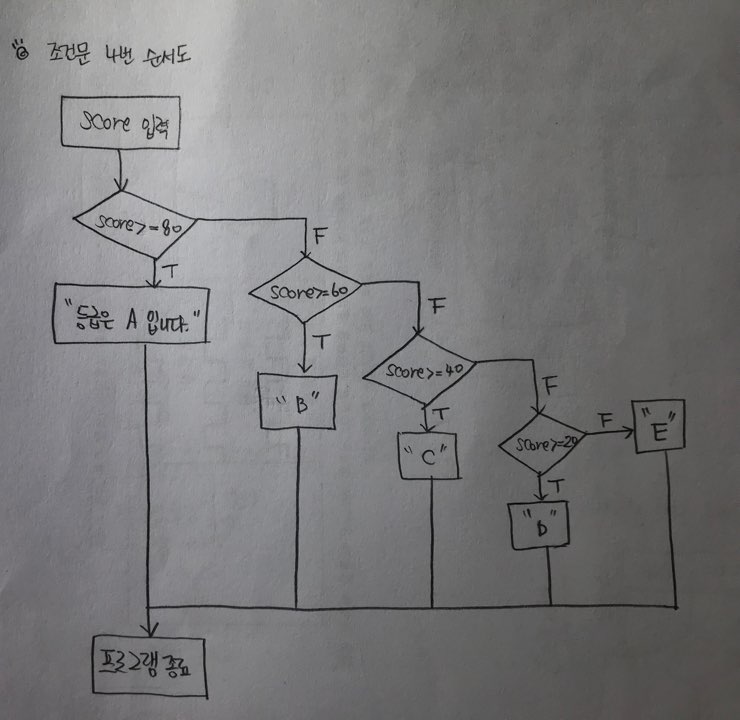 조건문 4번 순서도
score 입력
score>=80
F
T
"등급은 A 입니다."
score>=60
F
T
"B"
score>=40
F
T
"C"
score>=20
F
"E"
T
"D"
프로그램 종료